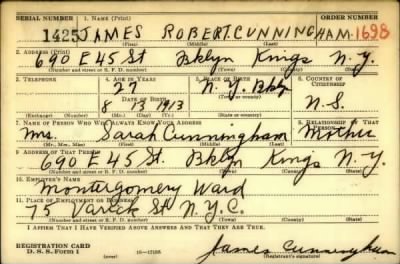 SERIAL NUMBER 1. NAME (Print) ORDER NUMBER
1425 JAMES ROBERT CUNNINGHAM 1698
(First) (Middle) (Last)
2. ADDRESS (Print)
690 E 45 St Bklyn Kings N.Y.
(Number and street or R. F. D. number) (Town) (County) (State)
3. TELEPHONE 4. AGE IN YEARS 5. PLACE OF BIRTH 6. COUNTRY OF CITIZENSHIP
27 N.Y. Bklyn
DATE OF BIRTH (Town or county)
8 13 1913 U.S.
(Exchange) (Number) (Mo.) (Day) (Yr.) (State or country)
7. NAME OF PERSON WHO WILL ALWAYS KNOW YOUR ADDRESS 8. RELATIONSHIP OF THAT PERSON
Mrs. Sarah Cunningham Mother
(Mr., Mrs., Miss) (First) (Middle) (Last)
9. ADDRESS OF THAT PERSON
690 E 45 St. Bklyn Kings N.Y.
(Number and street or R. F. D. number) (Town) (County) (State)
10. EMPLOYER'S NAME
Montergomery Ward
11. PLACE OF EMPLOYMENT OR BUSINESS
75 Varick St N.Y.C.
(Number and street or R. F. D. number) (Town) (County) (State)
I AFFIRM THAT I HAVE VERIFIED ABOVE ANSWERS AND THAT THEY ARE TRUE.
REGISTRATION CARD
D. S. S. Form 1 (over) James Cunningham
(Registrant's signature)